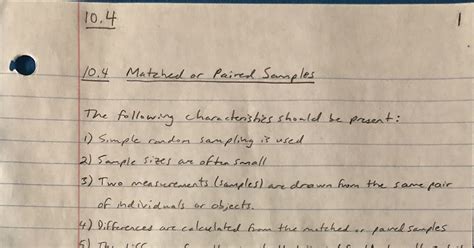 10.4 1
10.4 Matched or Paired Samples
The following characteristics should be present:
1) Simple random sampling is used
2) Sample sizes are often small
3) Two measurements (samples) are drawn from the same pair
of individuals or objects.
4) Differences are calculated from the matched or paired samples
5) The